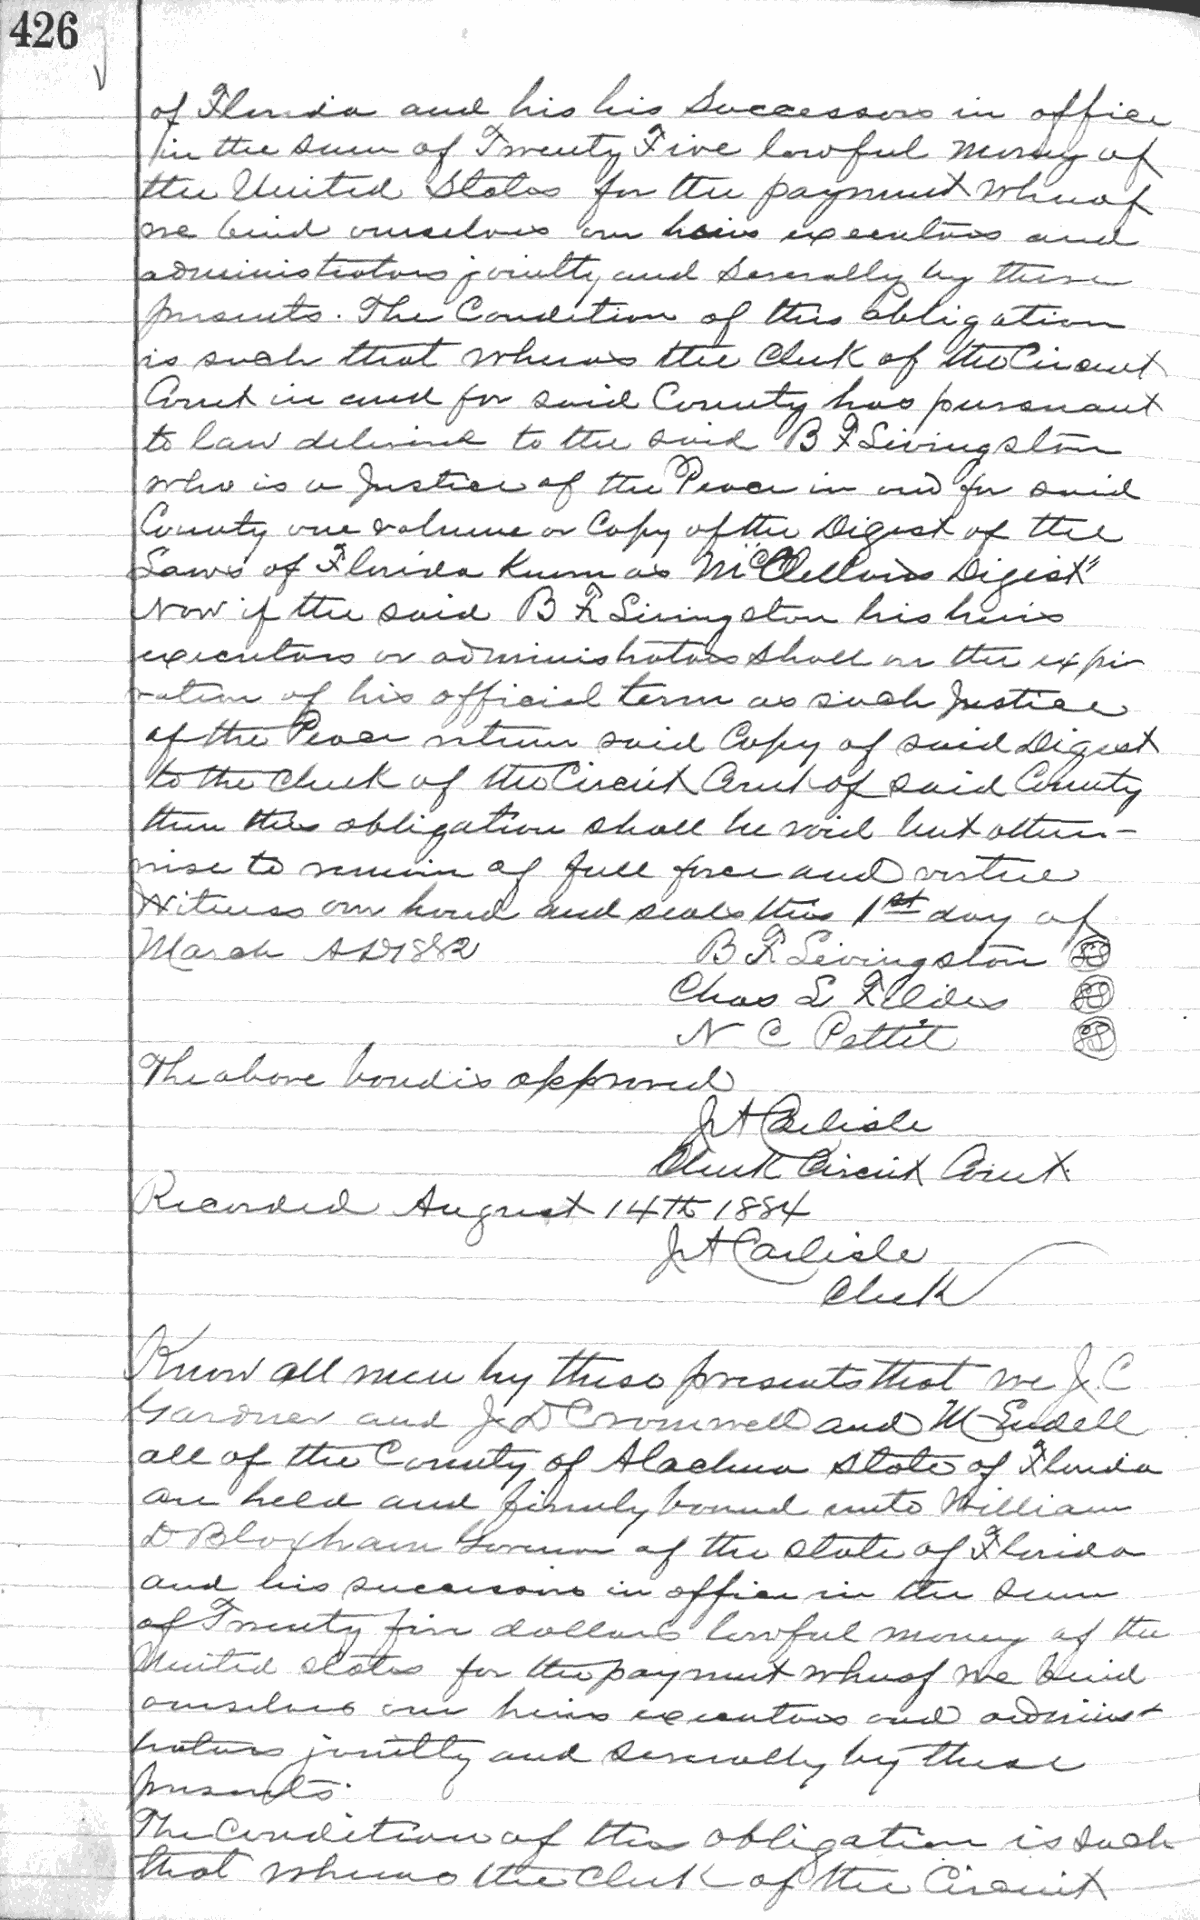 426
of Florida and his his Successors in office
in the sum of Twenty Five lawful money of
the United States for the payment whereof
we bind ourselves our heirs executors and
administrators jointly and severally by these
presents. The Condition of this obligation
is such that whereas the Clerk of the Circuit
Court in and for said County has pursuant
to law delivered to the said B F Livingston
who is a Justice of the Peace in and for said
County one volume or Copy of the Digest of the
Laws of Florida known as "McClellans Digest"
Now if the said B F Livingston his heirs
executors or administrators shall on the expi
ration of his official term as such Justice
of the Peace return said Copy of said Digest
to the Clerk of the Circuit Court of said County
then this obligation shall be void but other-
wise to remain of full force and virtue
Witness our hand and seals this 1st day of
March AD 1882 B F Livingston
Chas L Fildes
N C Pettit
The above bond is approved
J A Carlisle
Clerk Circuit Court
Recorded August 14th 1884
J A Carlisle
Clerk
Know all men by these presents that we J. C
Gardner and J D Cromwell and M Endell
all of the County of Alachua State of Florida
are held and firmly bound unto William
D Bloxham Governor of the state of Florida
and his successors in office in the sum
of Twenty five dollars lawful money of the
United states for the payment whereof we bind
ourselves our heirs executors and administ
trators jointly and severally by these
presents.
The Condition of this obligation is such
that whereas the Clerk of the Circuit